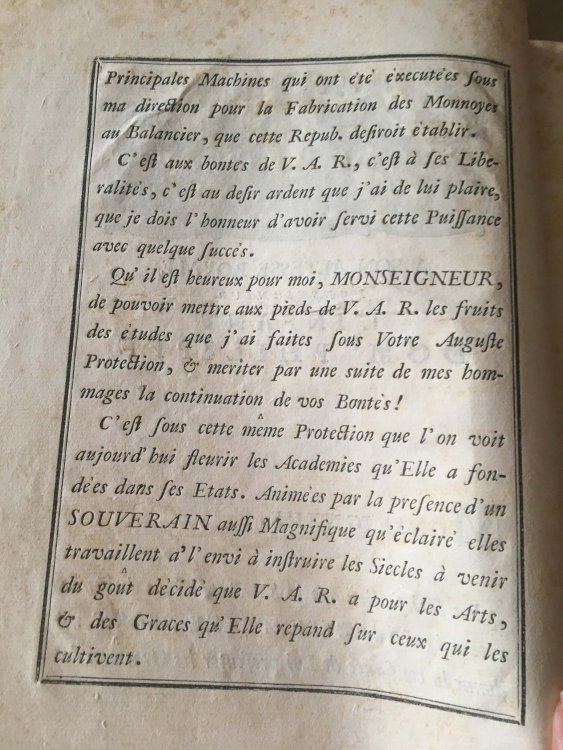 Principales Machines qui ont été éxecutées ſous
ma direction pour la Fabrication des Monnoyes
au Balancier, que cette Repub. deſiroit établir.
C'eſt aux bontés de V. A. R., c'eſt à ſes Libe-
ralités, c'eſt au deſir ardent que j'ai de lui plaire,
que je dois l'honneur d'avoir ſervi cette Puiſſance
avec quelque ſuccès.
Qu'il eſt heureux pour moi, MONSEIGNEUR,
de pouvoir mettre aux pieds de V. A. R. les fruits
des études que j'ai faites ſous Votre Auguſte
Protection, & meriter par une ſuite de mes hom-
mages la continuation de vos Bontés!
C'eſt ſous cette même Protection que l'on voit
aujourd'hui fleurir les Academies qu'Elle a fon-
dées dans ſes Etats. Animées par la preſence d'un
SOUVERAIN auſſi Magnifique qu'éclairé elles
travaillent a'l'envi à inſtruire les Siecles à venir
du goût décidé que V. A. R. a pour les Arts,
& des Graces qu'Elle repand ſur ceux qui les
cultivent.